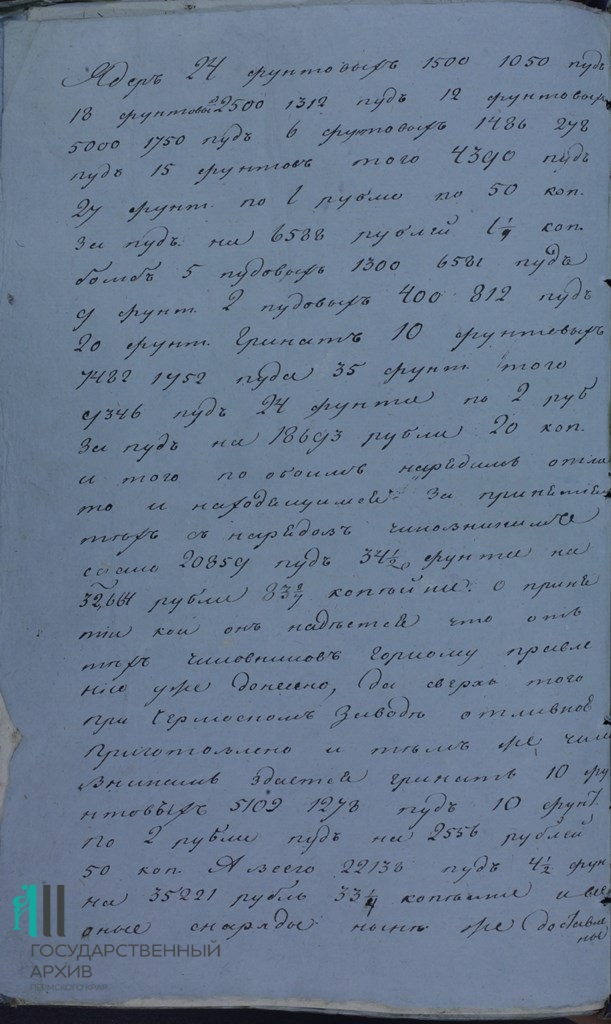 Ядеръ 24 фунтовыхъ 1500 1050 пудъ
18 фунтовы 2500 1312 пудъ 12 фунтовыхъ
5000 1750 пудъ 6 фунтовыхъ 1486 278
пудъ 15 фунтовъ того 4390 пудъ
27 фунт. по 1 рублю по 50 коп.
за пудъ на 6588 рублей 1 1/4 коп.
бомбъ 5 пудовыхъ 1300 6581 пудъ
9 фунт. 2 пудовыхъ 400 812 пудъ
20 фунт. Гранатъ 10 фунтовыхъ
7482 1952 пуда 35 фунт. того
9346 пудъ 24 фунта по 2 руб
за пудъ на 18693 рубли 20 коп.
и того по обоимъ нарядамъ отли
то и находящимся за
съ нарядовъ чиновникамъ
сдано 20859 пудъ 34 1/2 фунта на
32664 рубли 83 копейки. о прин
тіи кои онъ надѣется что отъ
тѣхъ чиновниковъ Горному правле
нію уже донесено, Да сверхъ того
при Заводѣ отливкою
приготовлено и тѣмъ же чино
вникамъ здается гранатъ 10 фу
нтовыхъ 5109 1278 пудъ 10 фунт.
по 2 рубли пудъ на 2556 рублей
50 коп. А всего 22138 пудъ 4 1/2 фун
на 35221 рубль 33 1/4 копейки и все
оные снаряды нынѣ же доставле
ны
ГОСУДАРСТВЕННЫЙ
АРХИВ
ПЕРМСКОГО КРАЯ